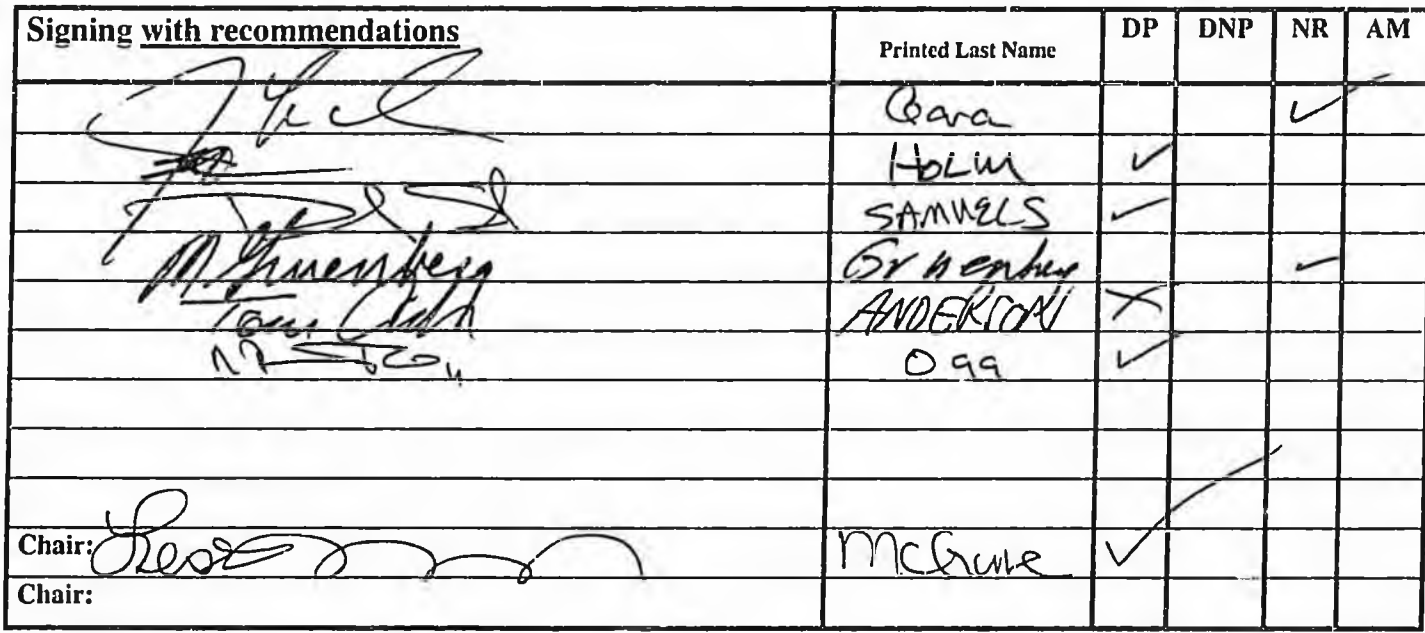 Signing with recommendations Printed Last Name DP DNP NR AM
Gara ✓
HOLM ✓
SAMUELS ✓
M Gruenberg Gruenberg ✓
ANDERSON X
Ogg ✓
Chair: McGuire ✓
Chair: